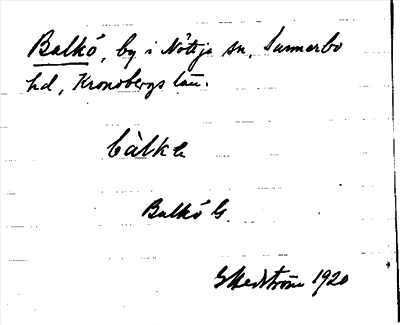 Balkö, by i Nöttja sn, Sunnerbo
hd, Kronobergs län.
bàlkö
Balkö G
GHedström 1920